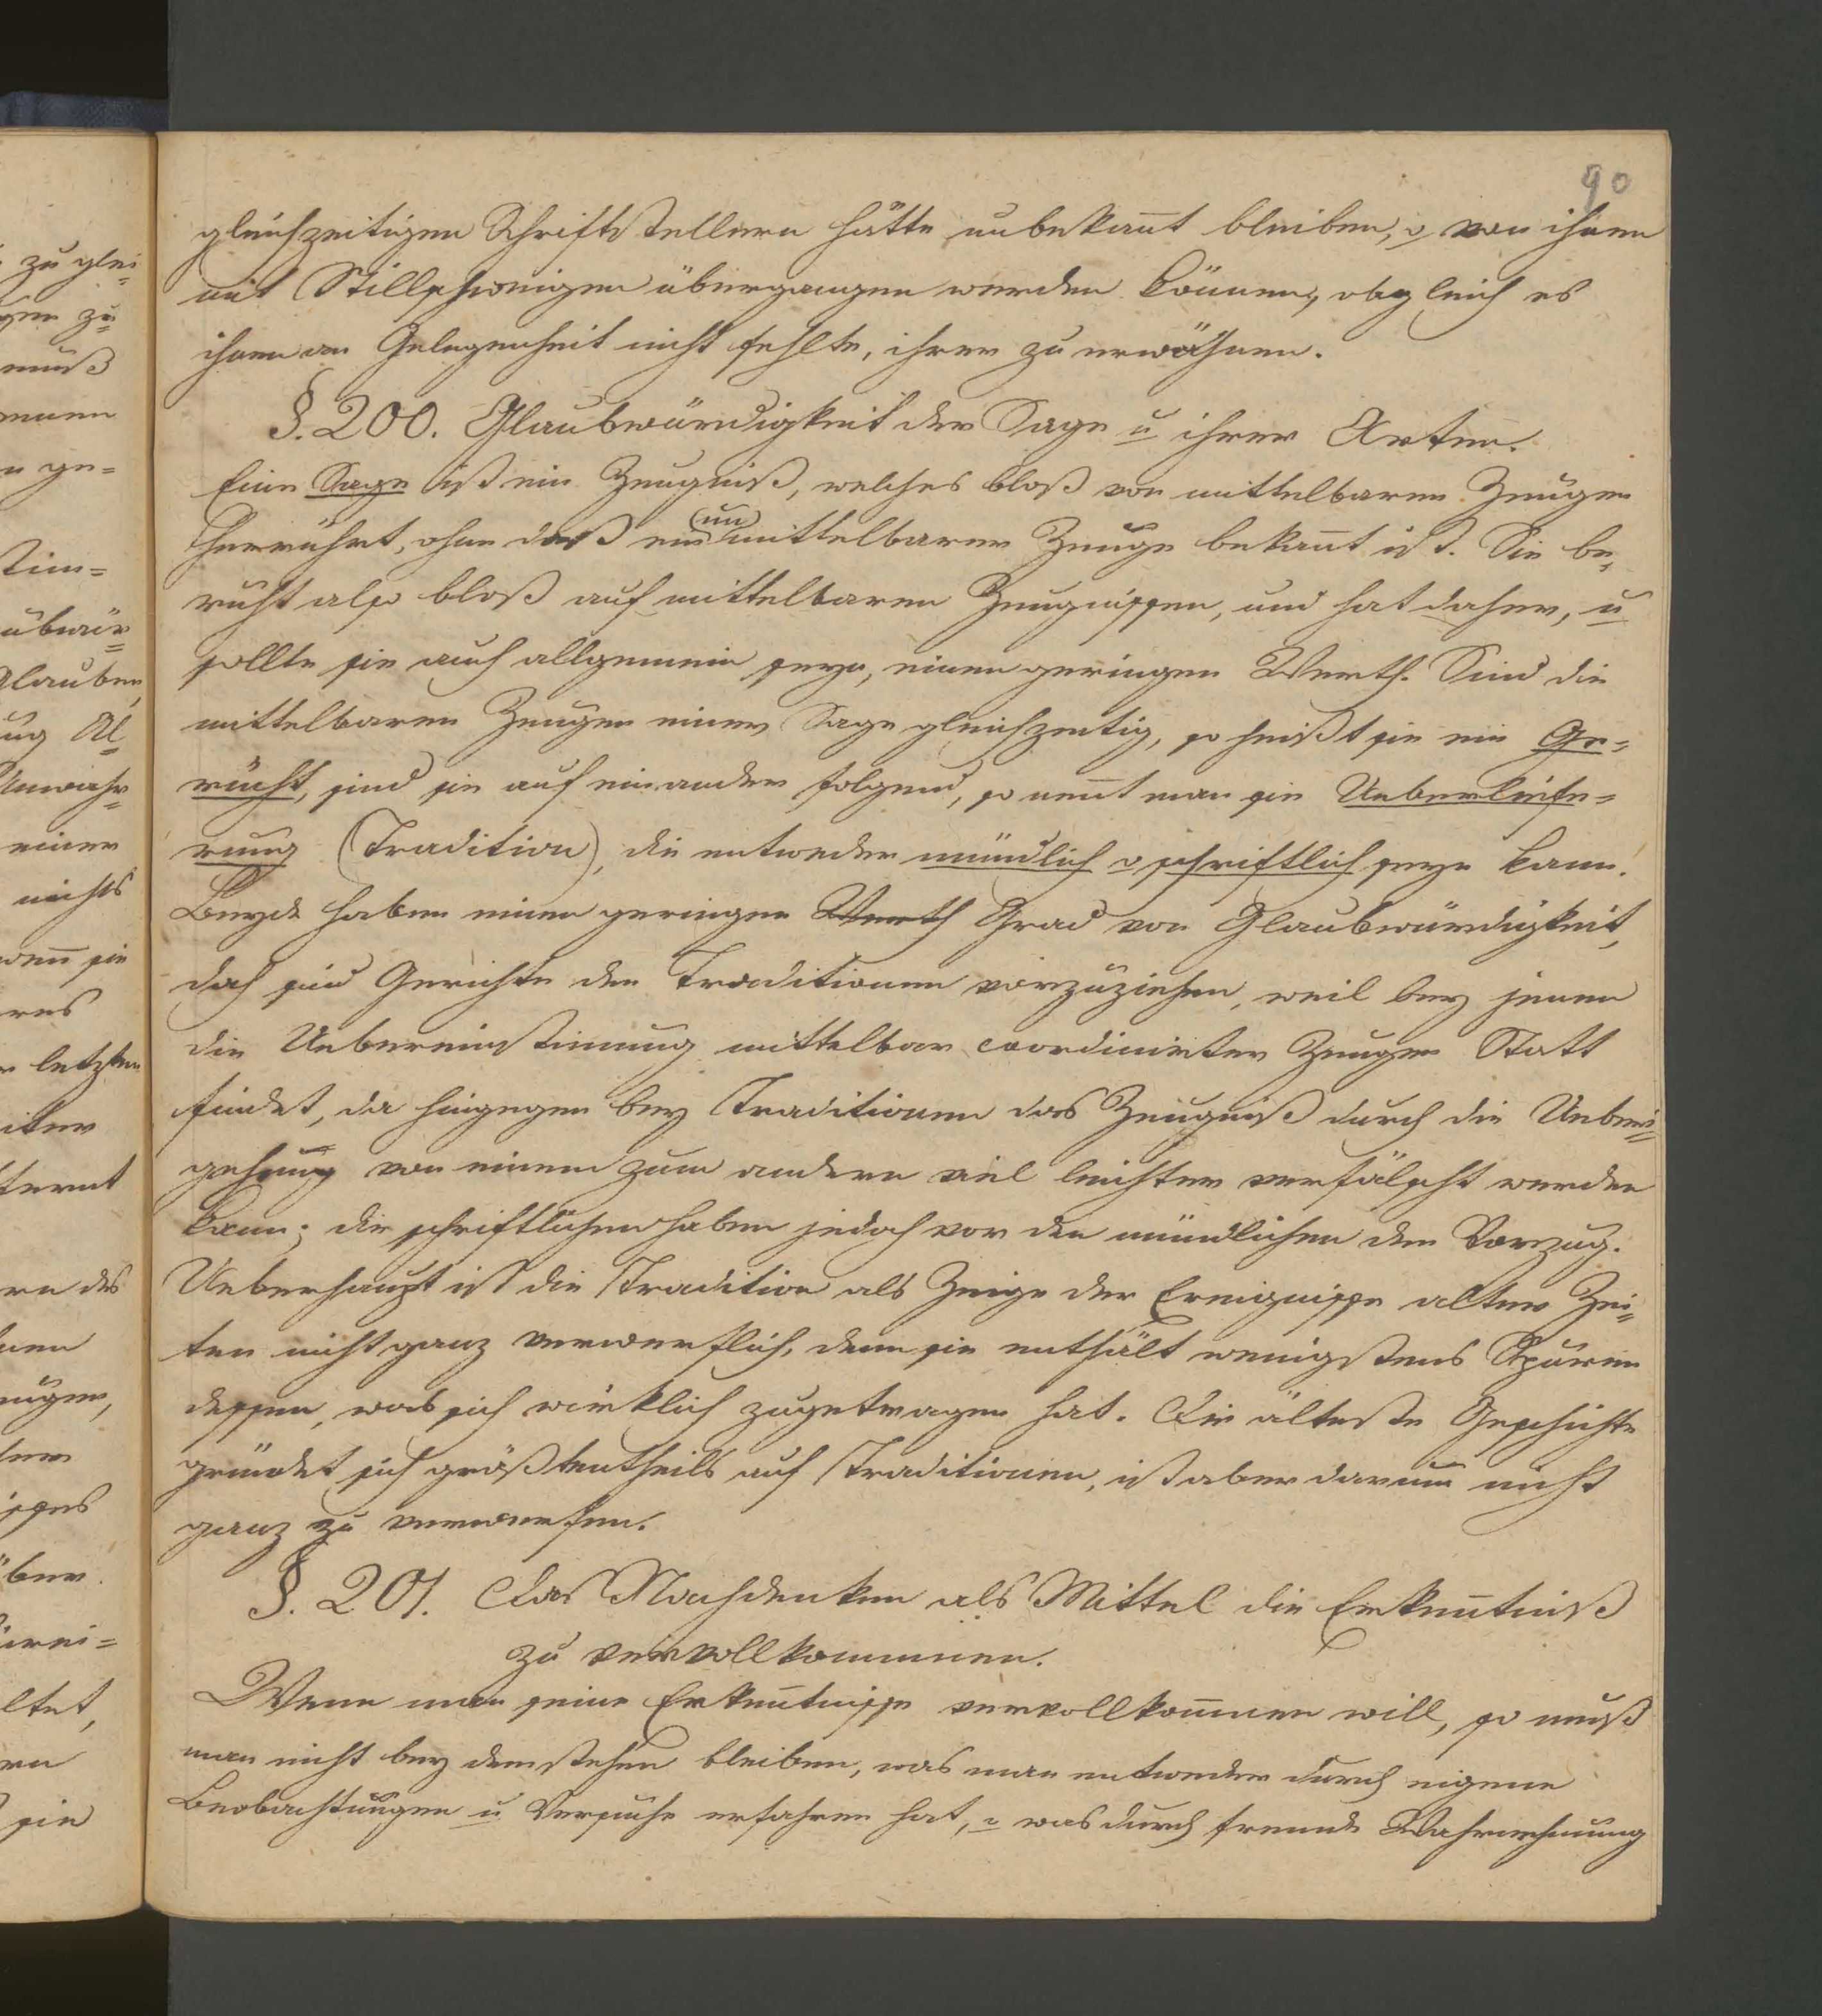 90
gleichzeitigen Schriftstellern hätte unbekañt bleiben, o von ihnen
mit Stillschweigen übergangen werden können, obgleich es
ihnen an Gelegenheit nicht fehlte, ihrer zu erwähnen.
§. 200. Glaubwürdigkeit der Sage u ihrer Arten.
Eine Sage ist ein Zeugniß, welches bloß von mittelbaren Zeugen
herrührt, ohne daß ein (un) mittelbarer Zeuge bekañt ist. Sie be,
ruht also bloß auf mittelbaren Zeugnissen, und hat daher, u
sollte sie auch allgemein seyn, einen geringen Werth. Sind die
mittelbaren Zeugen einer Sage gleichzeitig, so heißt sie ein Ge=
rücht, sind sie auf einander folgend, so neñt man sie Ueberliefe=
rung (Tradition), die entweder mündlich o schriftlich seyn kann.
Beyde haben einen geringen Werth Grad von Glaubwürdigkeit,
doch sind Gerüchte den Traditionen vorzuziehen, weil bey jenen
die Uebereinstimung mittelbar coordinirter Zeugen Statt
findet, da hingegen bey Traditionen das Zeugniß durch die Ueber=
gehung von einem zum andern viel leichter verfälscht werden
kann; die schriftlichen haben jedoch vor den mündlichen den Vorzug.
Ueberhaupt ist die Tradition als Zeuge der Ereignisse alter Zei=
ten nicht ganz verwerflich, denn sie enthält wenigstens Spuren
dessen, was sich wirklich zugetragen hat. Die älteste Geschichte
gründet sich größtentheils auf Traditionen, ist aber darum nicht
ganz zu verwerfen.
§. 201. Das Nachdenken als Mittel die Erkeñtniß
zu vervollkommnen.
Wenn man seine Erkeñtnisse vervollkom̃nen will, so muß
man nicht bey dem stehen bleiben, was man entweder durch eigene
Beobachtungen u Versuche erfahren hat, o was durch fremde Wahrnehmung